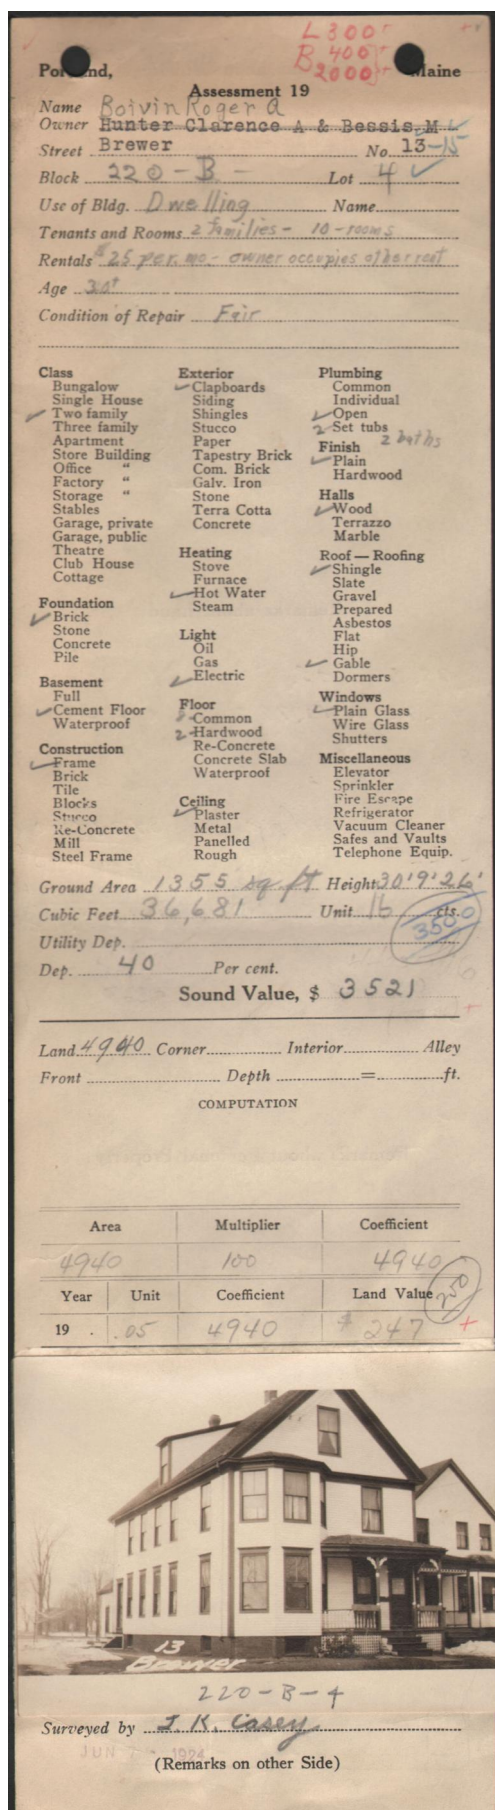 L 300
B 400
2000
Portland, Maine
Assessment 19
Name Boivin Roger A
Owner Hunter Clarence A & Bessie M
Street Brewer No. 13-15
Block 220 - B - Lot 4
Use of Bldg. Dwelling Name
Tenants and Rooms 2 families - 10 - rooms
Rentals $25 per. mo. - owner occupies other rent
Age 30+
Condition of Repair Fair
Class
Bungalow
Single House
✓ Two family
Three family
Apartment
Store Building
Office "
Factory "
Storage "
Stables
Garage, private
Garage, public
Theatre
Club House
Cottage
Foundation
✓ Brick
Stone
Concrete
Pile
Basement
Full
✓ Cement Floor
Waterproof
Construction
✓ Frame
Brick
Tile
Blocks
Stucco
Re-Concrete
Mill
Steel Frame
Exterior
✓ Clapboards
Siding
Shingles
Stucco
Paper
Tapestry Brick
Com. Brick
Galv. Iron
Stone
Terra Cotta
Concrete
Heating
Stove
Furnace
✓ Hot Water
Steam
Light
Oil
Gas
✓ Electric
Floor
8 Common
2 Hardwood
Re-Concrete
Concrete Slab
Waterproof
Ceiling
✓ Plaster
Metal
Panelled
Rough
Plumbing
Common
Individual
✓ Open
2 Set tubs
2 baths
Finish
✓ Plain
Hardwood
Halls
✓ Wood
Terrazzo
Marble
Roof — Roofing
✓ Shingle
Slate
Gravel
Prepared
Asbestos
Flat
Hip
✓ Gable
Dormers
Windows
✓ Plain Glass
Wire Glass
Shutters
Miscellaneous
Elevator
Sprinkler
Fire Escape
Refrigerator
Vacuum Cleaner
Safes and Vaults
Telephone Equip.
Ground Area 1355 sq ft Height 30' 9' 26'
Cubic Feet 36,681 Unit 16 cts.
3500
Utility Dep.
Dep. 40 Per cent.
Sound Value, $ 3521
Land 4940 Corner Interior Alley
Front Depth = ft.
COMPUTATION
Area Multiplier Coefficient
4940 100 4940
Year Unit Coefficient Land Value 250
19 . .05 4940 $ 247
13
Brewer
220-B-4
Surveyed by J. K. Casey
JUN 1924
(Remarks on other Side)